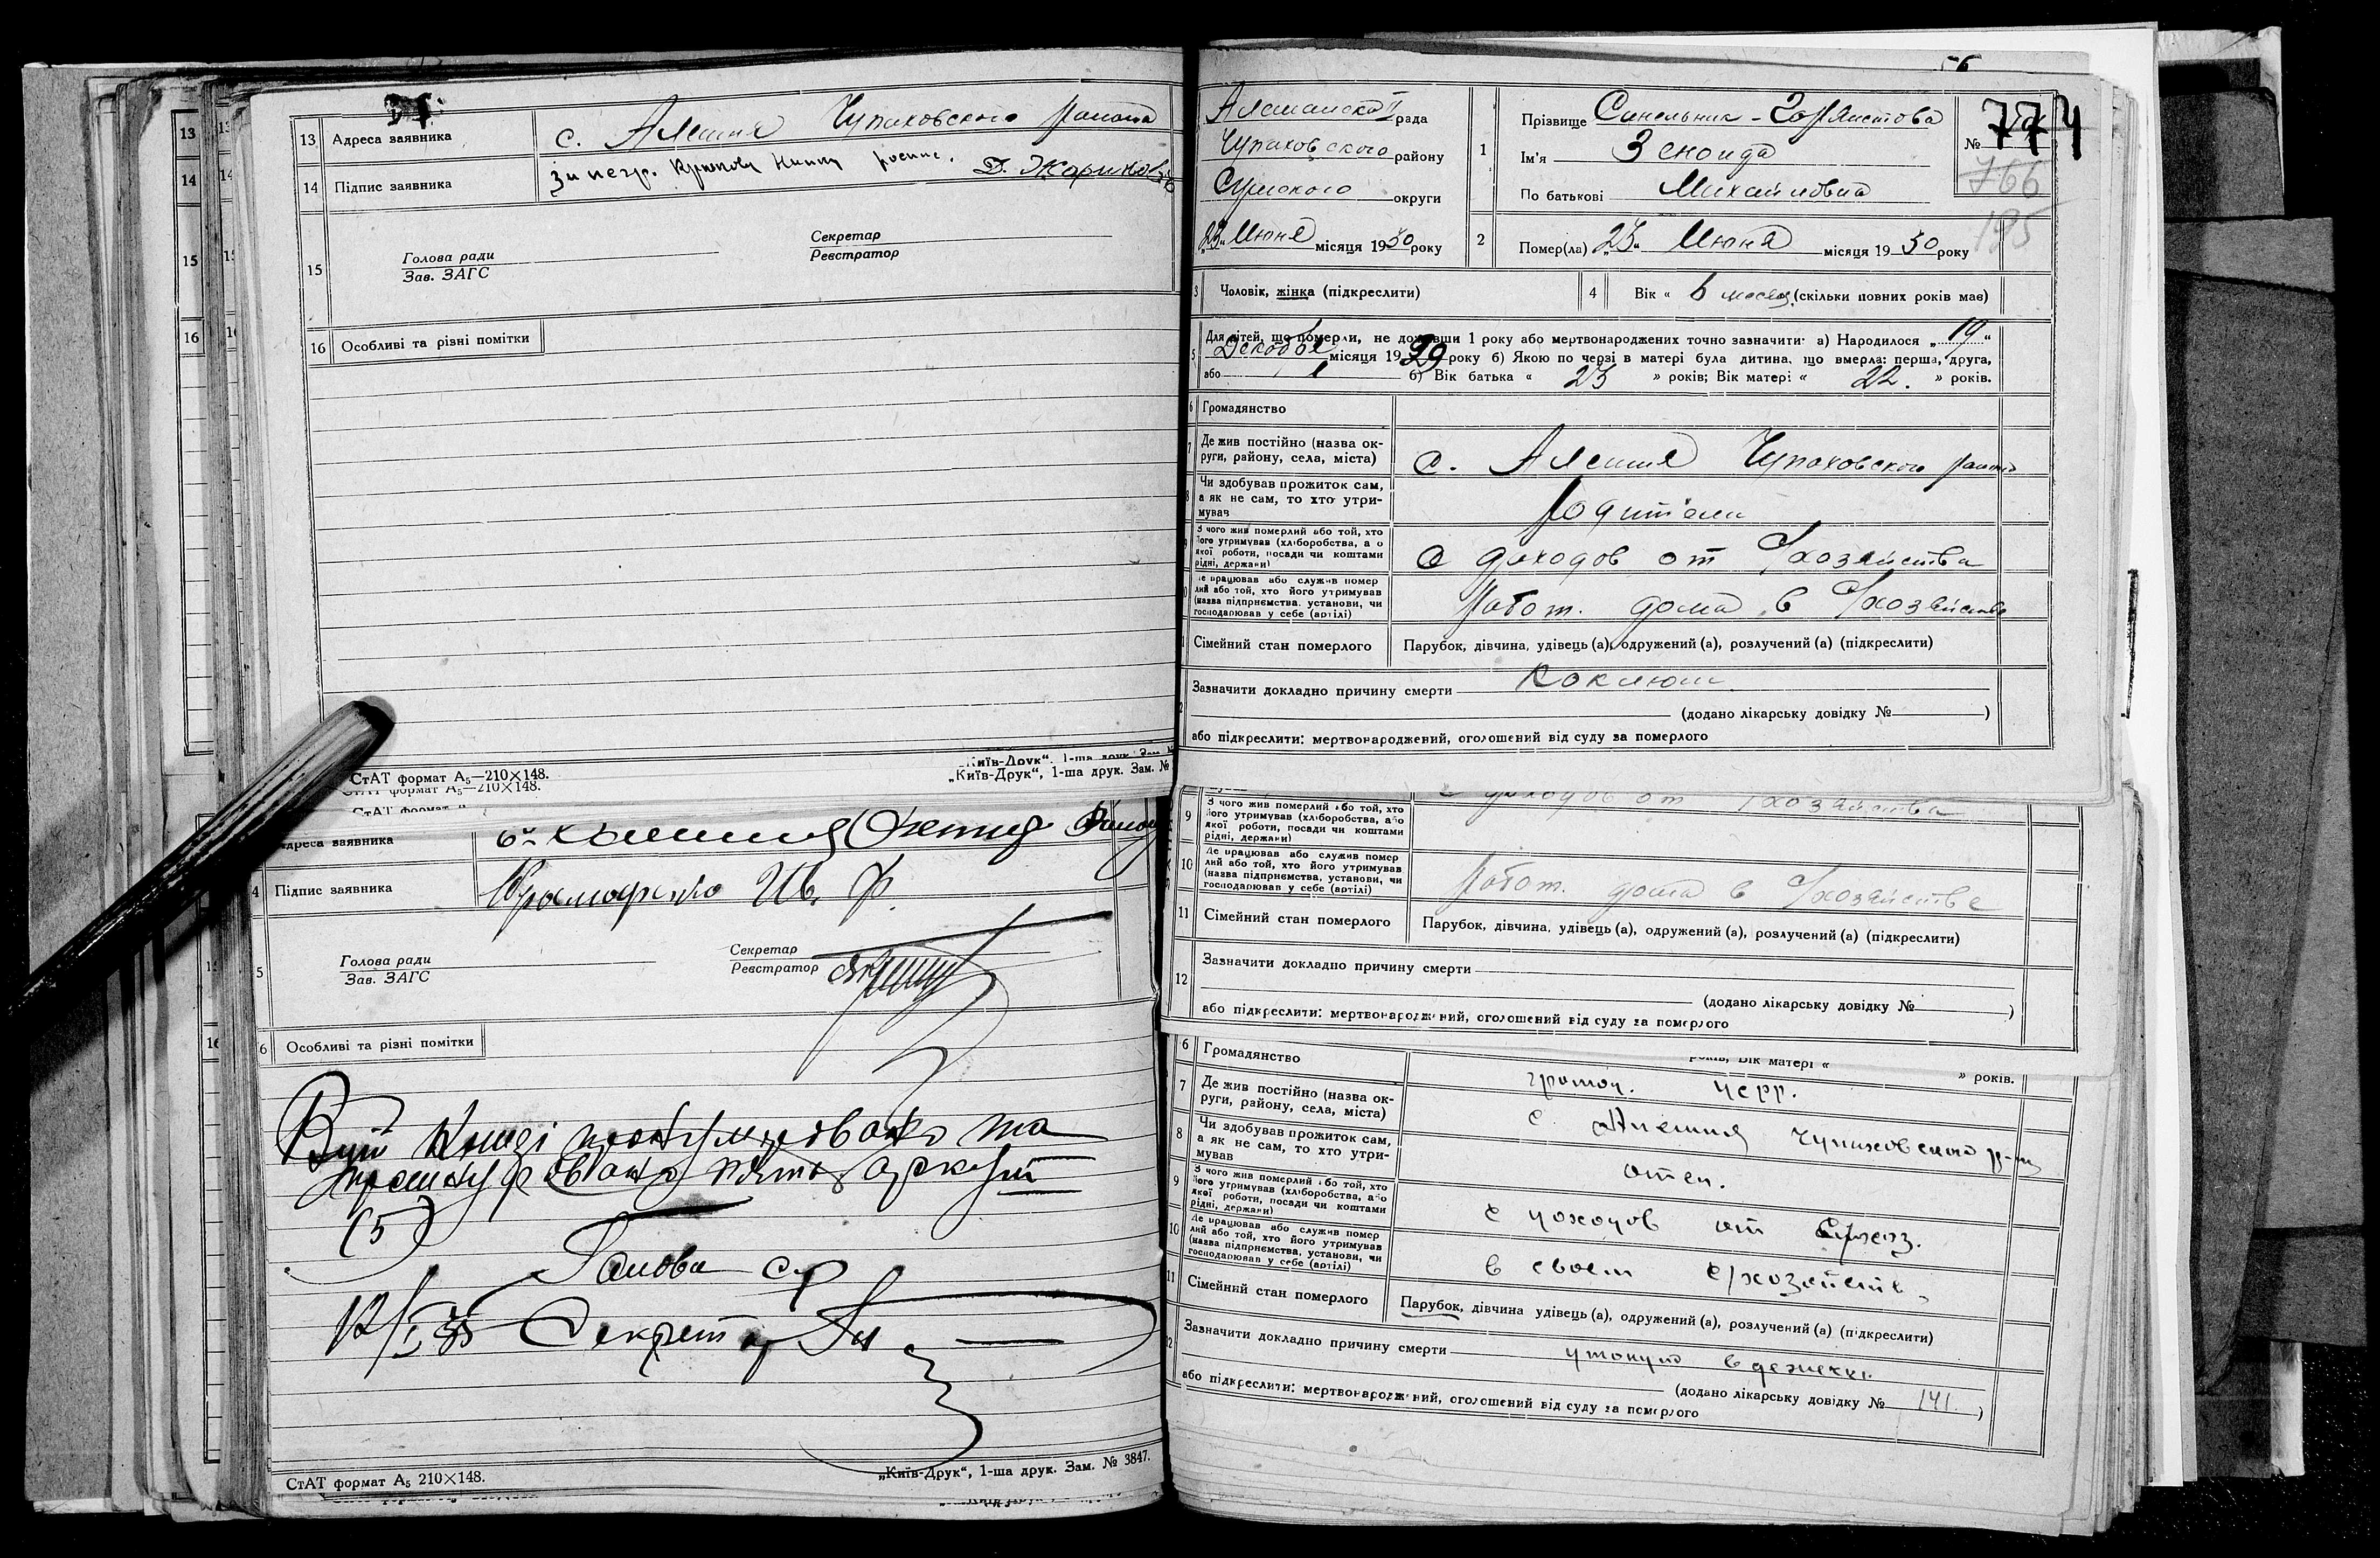 13 Адреса заявника с. Алешня Чупаховского района
14 Підпис заявника за негр. Нину роспис. Д. Жариков
15 Голова ради
Зав. ЗАГС
Секретар
Реєстратор
16 Особливі та різні помітки
СтАТ формат А₅—210×148.
„Київ-Друк“, 1-ша друк. Зам. №
Адреса заявника
Підпис заявника Ів. Ф.
Голова ради
Зав. ЗАГС
Секретар
Реєстратор
6 Особливі та різні помітки
В цій Книзі пронумеровано та
прошнуровано пять аркуш
(5)
Голова с/р
Секретар
СтАТ формат А₅ 210×148.
„Київ-Друк“, 1-ша друк. Зам. № 3847.
56
Алешанска рада
Чупаховского району
Сумского округи
„25“ Июня місяця 1930 року
1 Прізвище Синельник-
Ім'я Зеноида
По батькові Михайловна
№ 774
766
195
2 Помер(ла) „25“ Июня місяця 1930 року
3 Чоловік, жінка (підкреслити)
4 Вік « 6 месяц. (скільки повних років має)
5 Для дітей, що померли, не доживши 1 року або мертвонароджених точно зазначити: а) Народилося „19“
Декабря місяця 1929 року б) Якою по черзі в матері була дитина, що вмерла: перша, друга,
або 1 б) Вік батька « 23 » років; Вік матері « 22. » років.
6 Громадянство
7 Де жив постійно (назва округи, району, села, міста) с. Алешня Чупаховского района
8 Чи здобував прожиток сам, а як не сам, то хто утримував Родители
9 З чого жив померлий або той, хто його утримував (хліборобства, або якої роботи, посади чи коштами рідні, держави) С доходов от с/хозяйства
10 Де працював або служив померлий або той, хто його утримував (назва підприємства, установи, чи господарював у себе (артілі) Работ. дома в с/хозяйстве
11 Сімейний стан померлого Парубок, дівчина, удівець (а), одружений (а), розлучений (а) (підкреслити)
12 Зазначити докладно причину смерти Коклюш
(додано лікарську довідку № )
або підкреслити: мертвонароджений, оголошений від суду за померлого
с доходов от с/хозяйства
9 З чого жив померлий або той, хто його утримував (хліборобства, або якої роботи, посади чи коштами рідні, держави)
10 Де працював або служив померлий або той, хто його утримував (назва підприємства, установи, чи господарював у себе (артілі) Работ. дома в с/хозяйстве
11 Сімейний стан померлого Парубок, дівчина, удівець (а), одружений (а), розлучений (а) (підкреслити)
12 Зазначити докладно причину смерти
(додано лікарську довідку № )
або підкреслити: мертвонароджений, оголошений від суду за померлого
років; Вік матері « » років.
6 Громадянство громад. УСРР.
7 Де жив постійно (назва округи, району, села, міста) с Алешня Чупаховского р-на
8 Чи здобував прожиток сам, а як не сам, то хто утримував отец.
9 З чого жив померлий або той, хто його утримував (хліборобства, або якої роботи, посади чи коштами рідні, держави) с доходов от с/хоз.
10 Де працював або служив померлий або той, хто його утримував (назва підприємства, установи, чи господарював у себе (артілі) в своем с/хозяйстве
11 Сімейний стан померлого Парубок, дівчина удівець (а), одружений (а), розлучений (а) (підкреслити)
12 Зазначити докладно причину смерти утонул в
(додано лікарську довідку № 141. )
або підкреслити: мертвонароджений, оголошений від суду за померлого